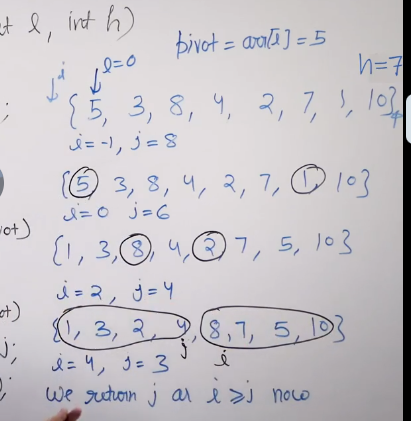 t l, int h)
pivot = arr[l] = 5
i l=0 h=7
{ 5, 3, 8, 4, 2, 7, 1, 10}
i=-1, j=8
{5, 3, 8, 4, 2, 7, 1, 10}
i=0 j=6
ot)
{1, 3, 8, 4, 2, 7, 5, 10}
i=2, j=4
ot)
{1, 3, 2, 4, 8, 7, 5, 10}
j i
j;
i=4, j=3
We return j as i ≥ j now